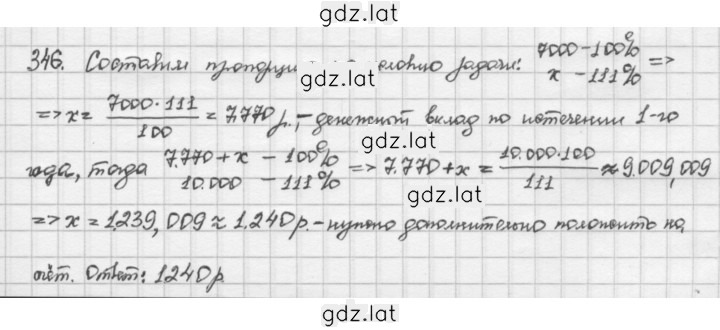 gdz.lat
346. Составим пропорцию по условию задачи: 7000 - 100% =>
gdz.lat
x - 111%
=> x = 7000·111 / 100 = 7.770 р. - денежный вклад по истечении 1-го
gdz.lat
года, тогда 7.770+x - 100% => 7.770+x = 10.000·100 / 111 ≈ 9.009,009
10.000 - 111%
gdz.lat
=> x = 1.239,009 ≈ 1.240р. - нужно дополнительно положить на
gdz.lat
счёт. Ответ: 1240р.
gdz.lat